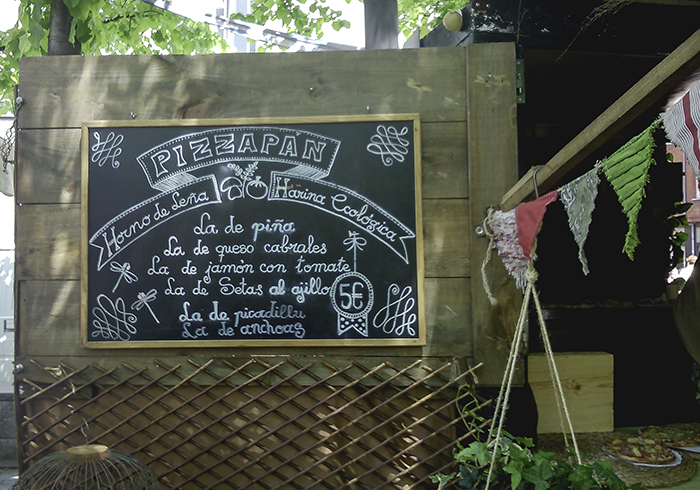 PIZZAPÁN
Horno de Leña
Harina Ecológica
La de piña
La de queso cabrales
La de jamón con tomate
La de Setas al ajillo
5€
La de picadillu
La de anchoas